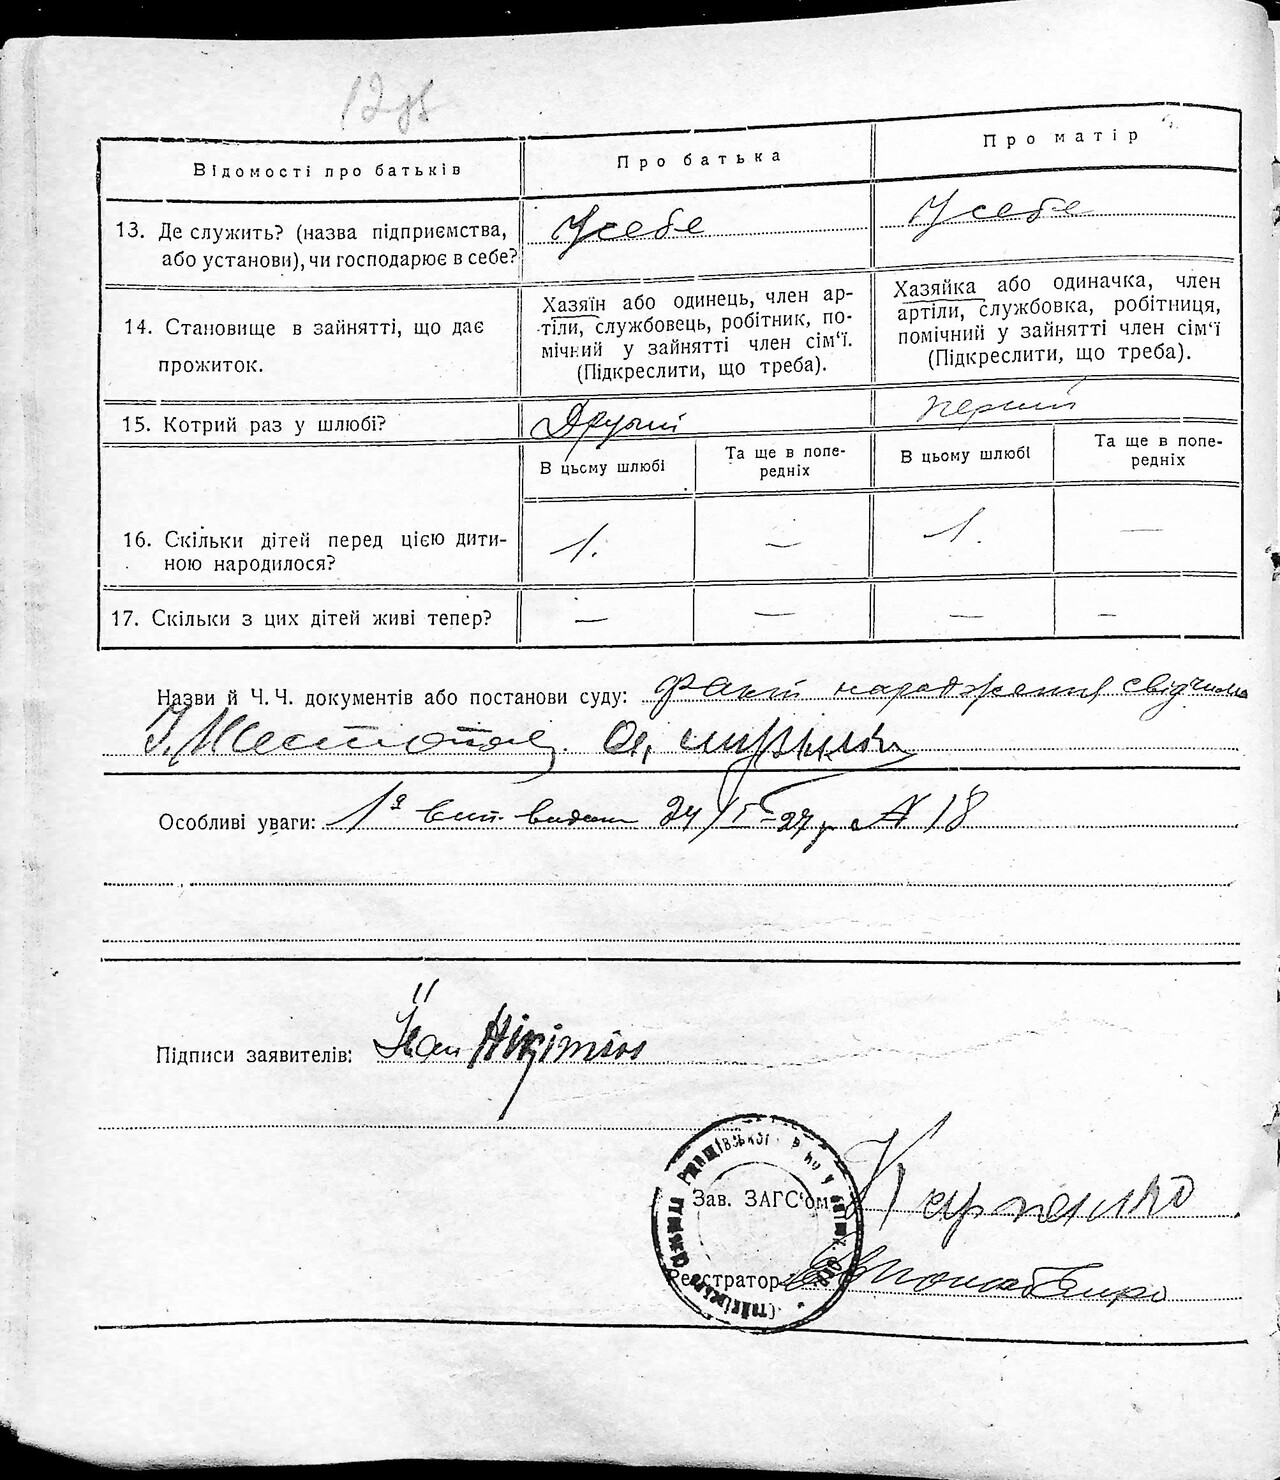 12
Відомості про батьків
Про батька
Про матір
13. Де служить? (назва підприємства,
або установи), чи господарює в себе?
У себе
У себе
14. Становище в зайнятті, що дає
прожиток.
Хазяїн або одинець, член ар-
тіли, службовець, робітник, по-
мічний у зайнятті член сім'ї.
(Підкреслити, що треба).
Хазяйка або одиначка, член
артіли, службовка, робітниця,
помічний у зайнятті член сім'ї
(Підкреслити, що треба).
15. Котрий раз у шлюбі?
Другий
перший
В цьому шлюбі
Та ще в попе-
редніх
В цьому шлюбі
Та ще в попе-
редніх
16. Скільки дітей перед цією дити-
ною народилося?
1. — 1. —
17. Скільки з цих дітей живі тепер?
— — — —
Назви й Ч. Ч. документів або постанови суду: Факт народження свідчимо
Особливі уваги: 1й вип. видан 24/II-27р №18
Підписи заявителів: Іван Нікітін
Зав. ЗАГС'ом Карпенко
Реєстратор